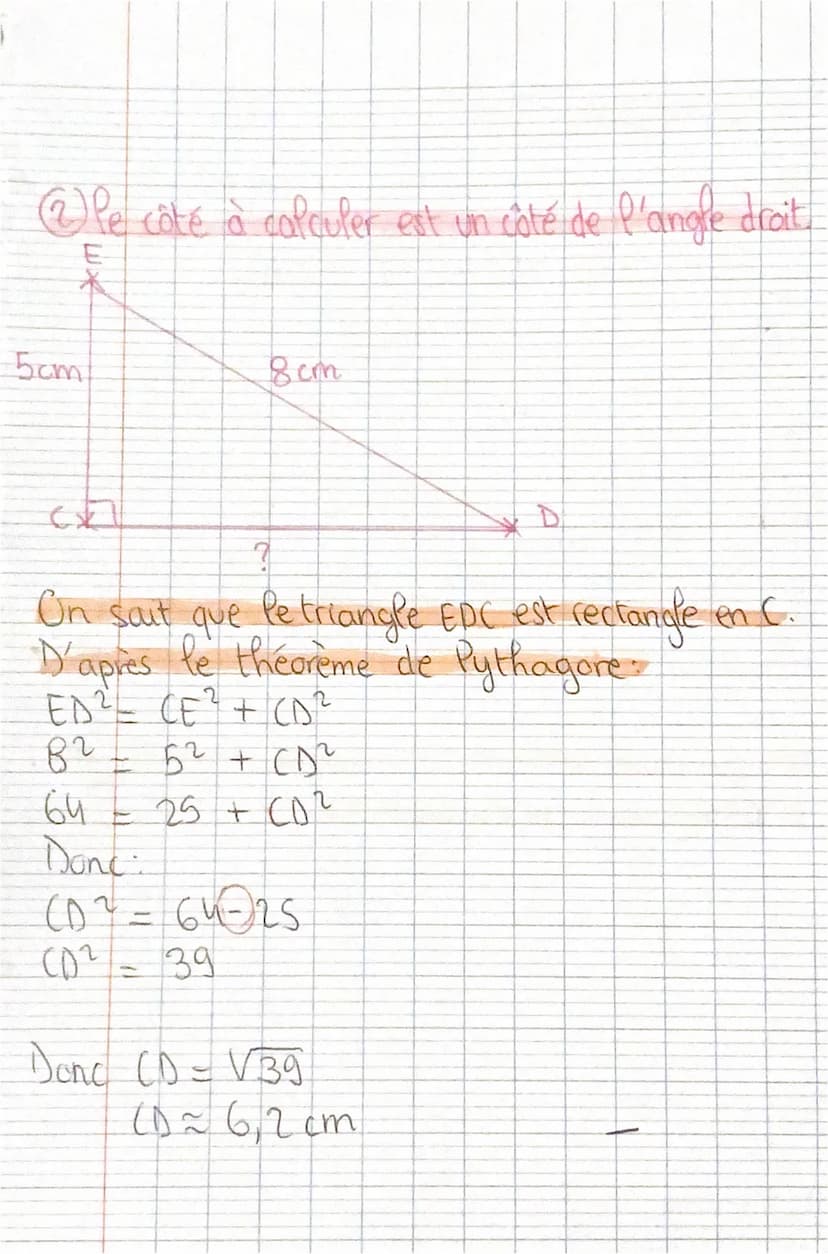 ② Le côté à calculer est un côté de l'angle droit.
E
5cm
8cm
C
D
?
On sait que le triangle EDC est rectangle en C.
D'après le théorème de Pythagore:
ED² = CE² + CD²
8² = 5² + CD²
64 = 25 + CD²
Donc:
CD² = 64-25
CD² = 39
Donc CD = √39
CD ≈ 6,2 cm